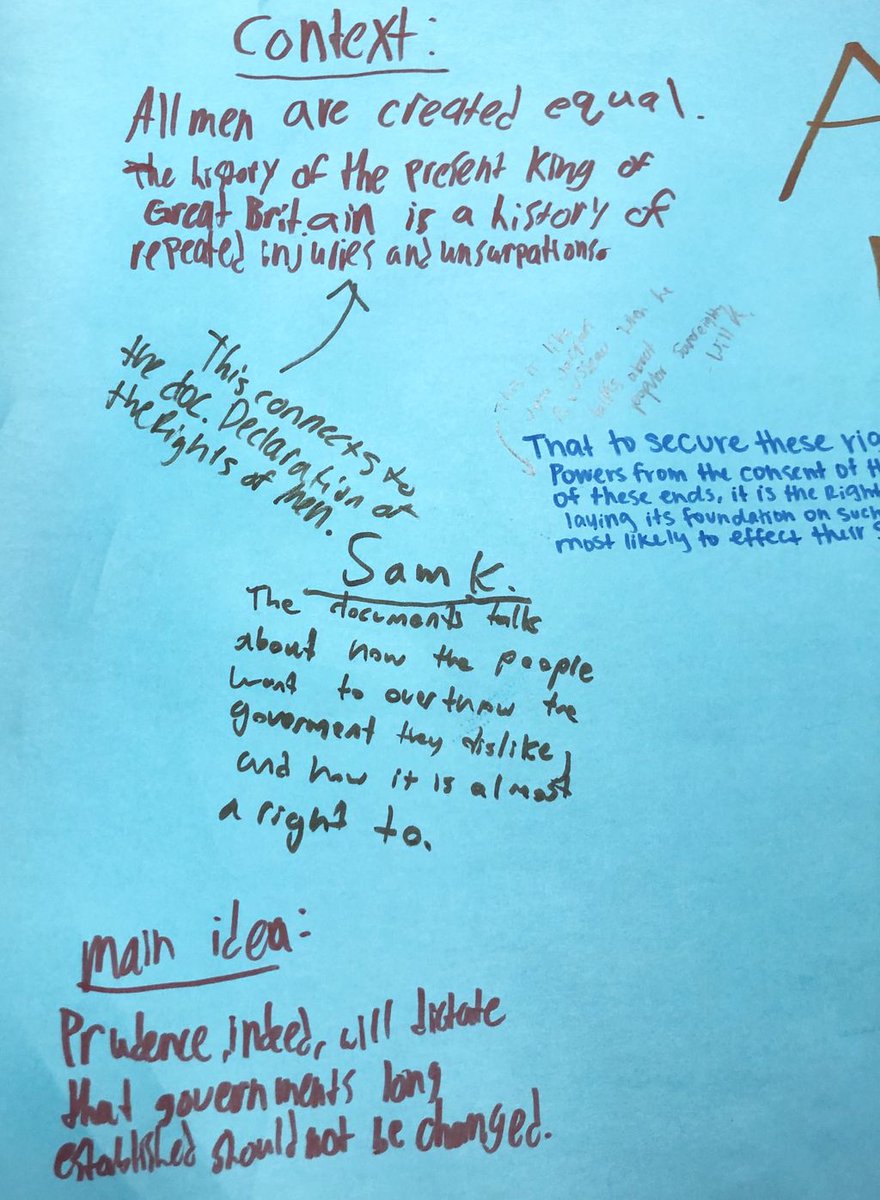 Context:
All men are created equal.
The history of the present King of
Great Britain is a history of
repeated injuries and unsurpations.
This connects to
the doc. Declaration of
the Rights of men.
talks about
popular
Will K.
That to secure these rig
Powers from the consent of th
of these ends, it is the Right
laying its foundation on such
most likely to effect their S
Sam K.
The documents talks
about how the people
want to overthrow the
goverment they dislike,
and how it is almost
a right to.
main idea:
Prudence, indeed, will dictate
that governments long
established should not be changed.
A